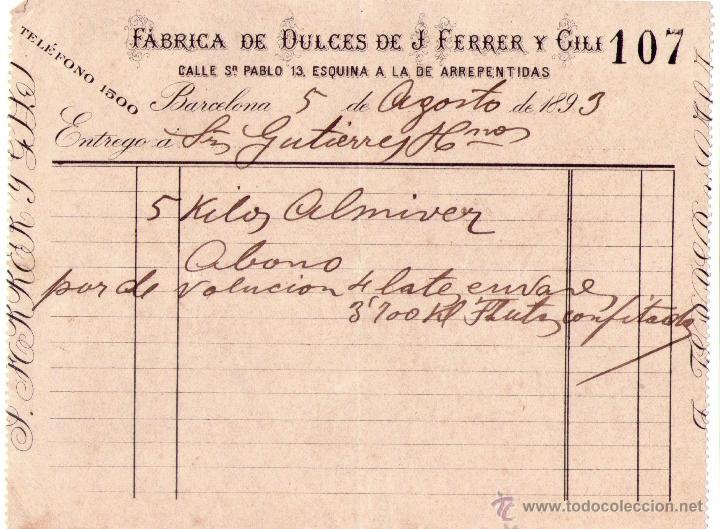 FÁBRICA DE DULCES DE J FERRER Y GILI 107
TELÉFONO 1500
CALLE Sn PABLO 13, ESQUINA A LA DE ARREPENTIDAS
Barcelona 5 de Agosto de 1893
Entrego a Srs Gutierrez Hnos
5 Kilos Almiver
Abono
por de volucion 4 late envase
3'700 Kl Fruta confitada
J. FERRER Y GILI
todocoleccion
www.todocoleccion.net